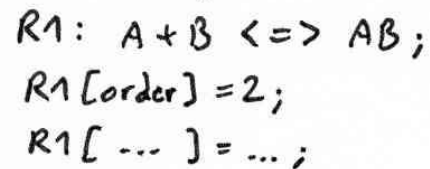 R1: A + B <=> AB;
R1[order] = 2;
R1[ --- ] = ...;